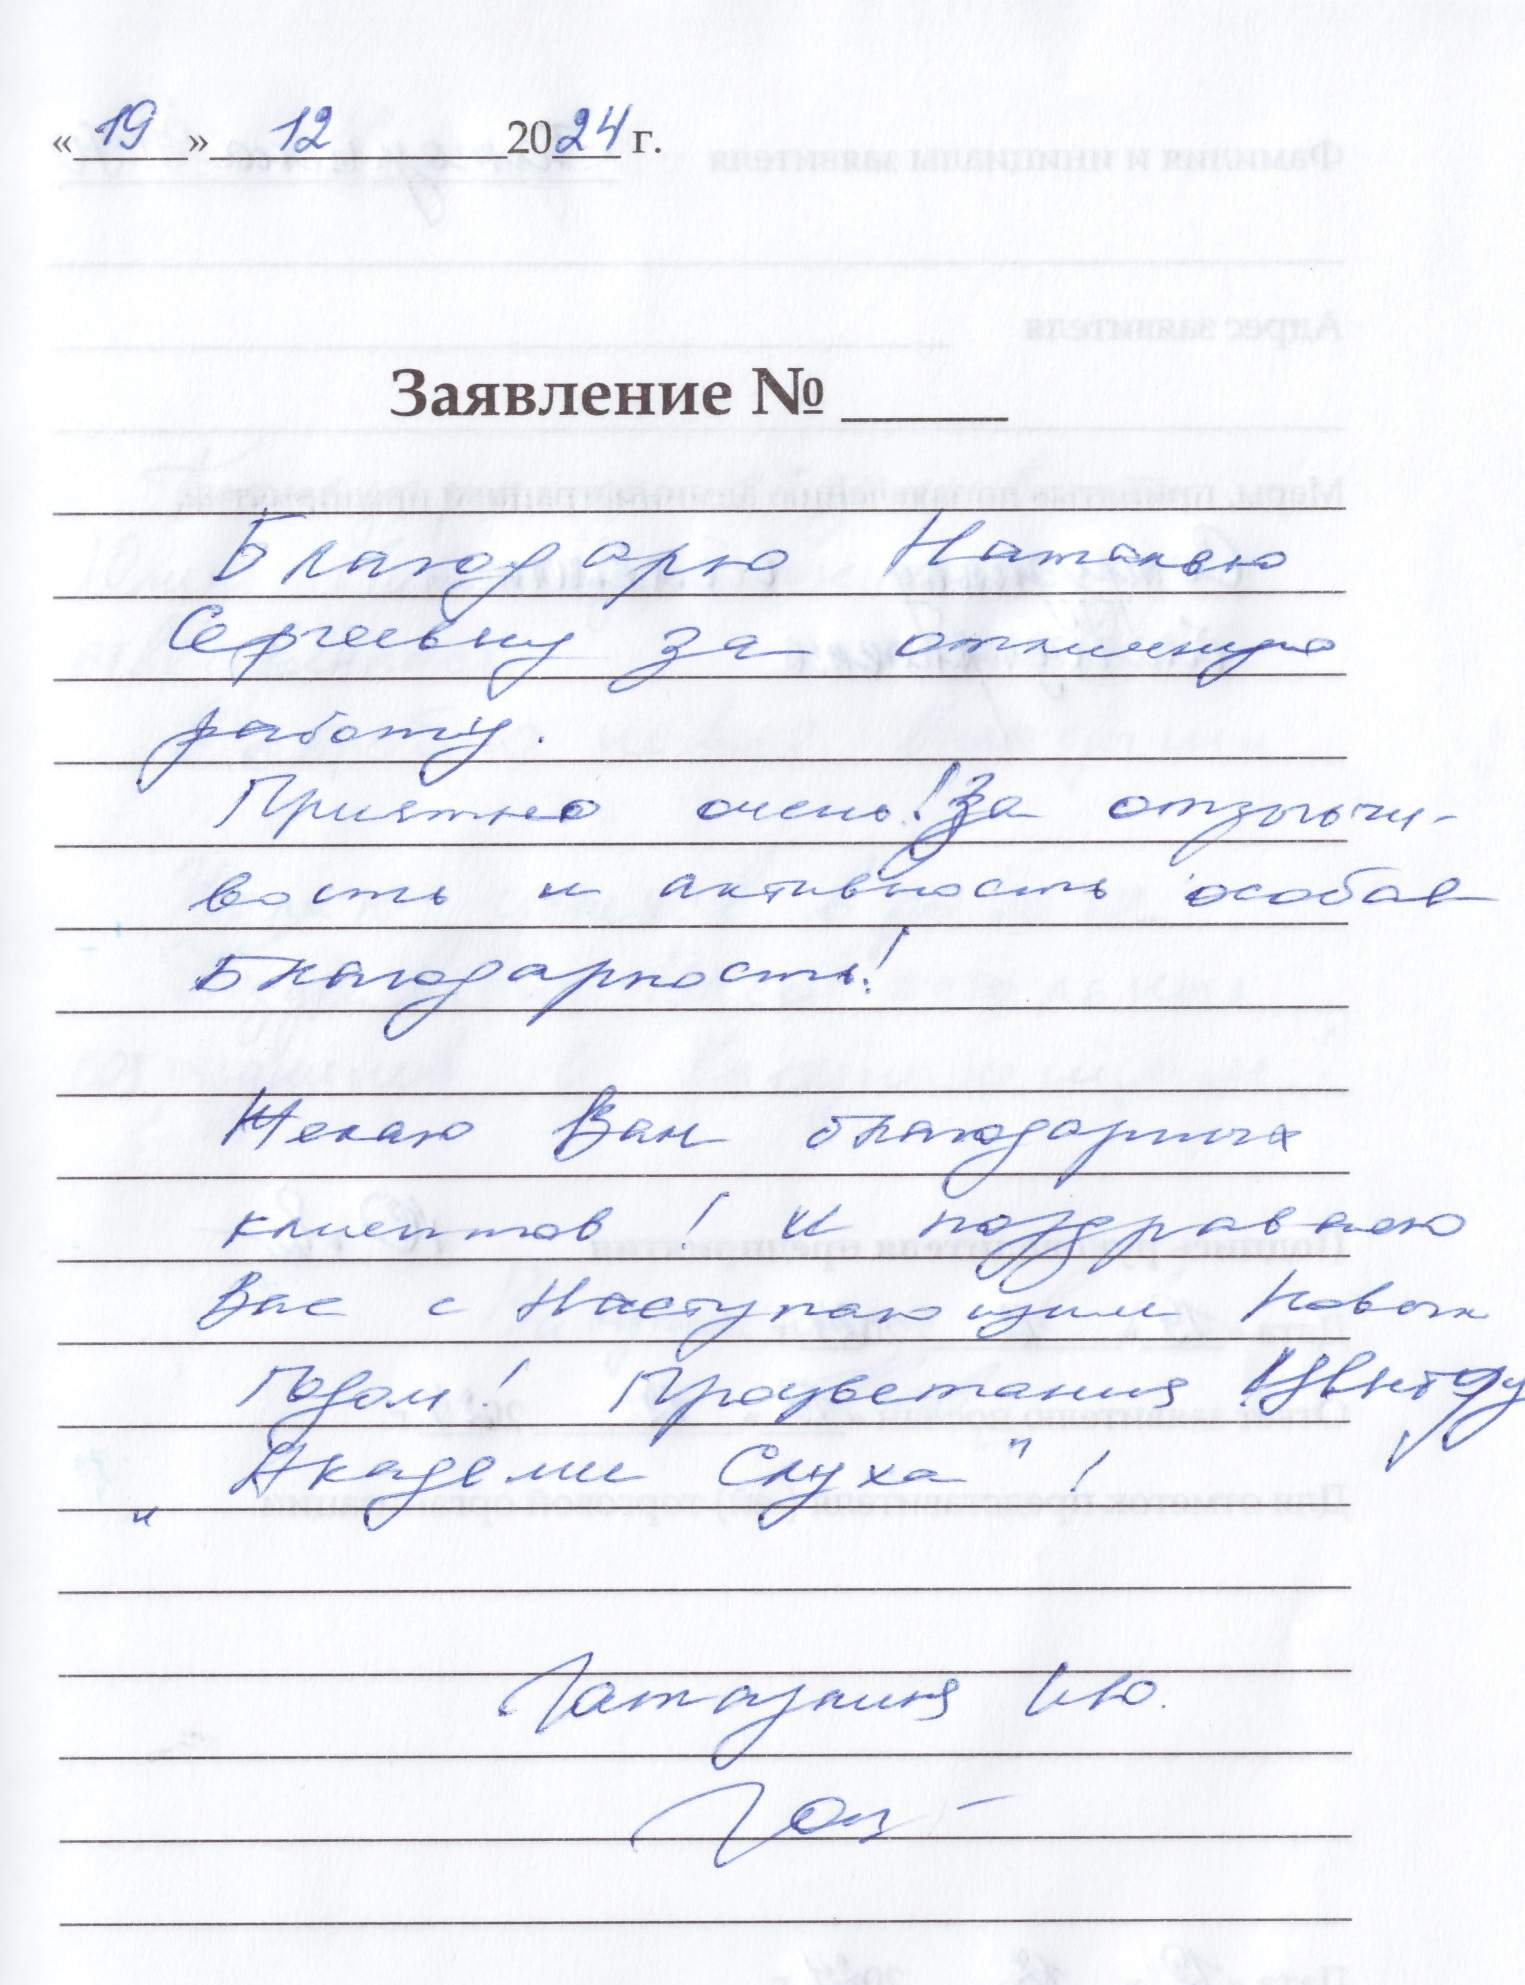 «19» 12 2024 г.
Заявление №
Благодарю Наталью
Сергеевну за отличную
работу.
Приятно очень! За отзычи-
вость и активность особая
Благодарность!
Желаю Вам благодарных
клиентов! И поздравляю
Вас с Наступающим Новым
Годом! Процветания Центру
„Академии Слуха"!